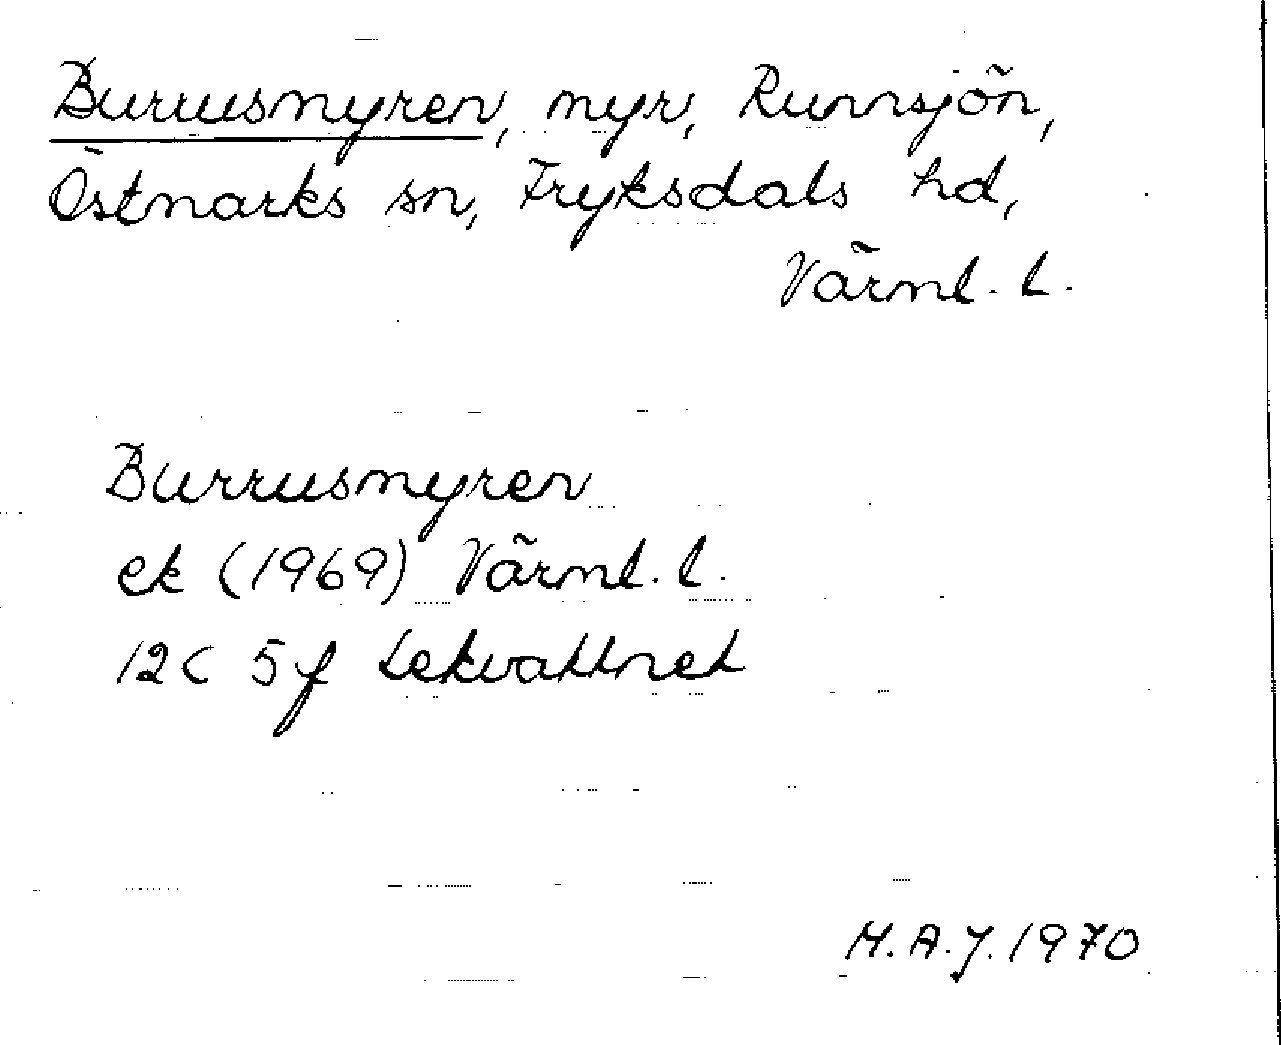 Burrusmyren, myr, Runnsjön,
Östmarks sn, Fryksdals hd,
Värml. l.
Burrusmyren
ek (1969) Värml. l.
12C 5f Lekvattnet
M.A.J. 1970